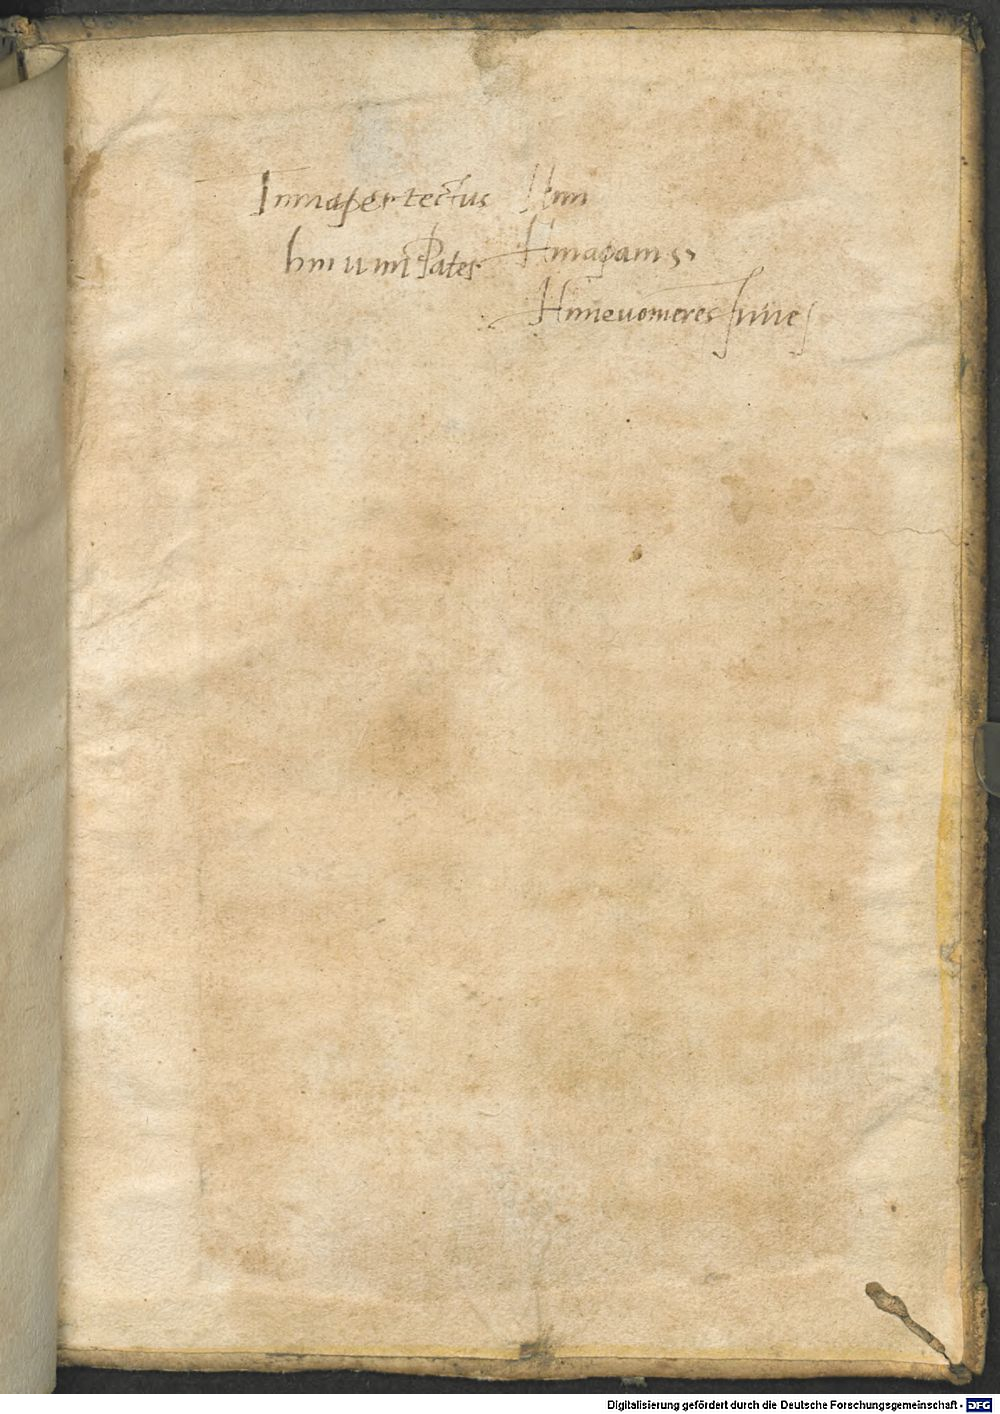 Inmapertectus Hnn
hmumn Pater Hmapams
Hnnevomeres
Digitalisierung gefördert durch die Deutsche Forschungsgemeinschaft - DFG